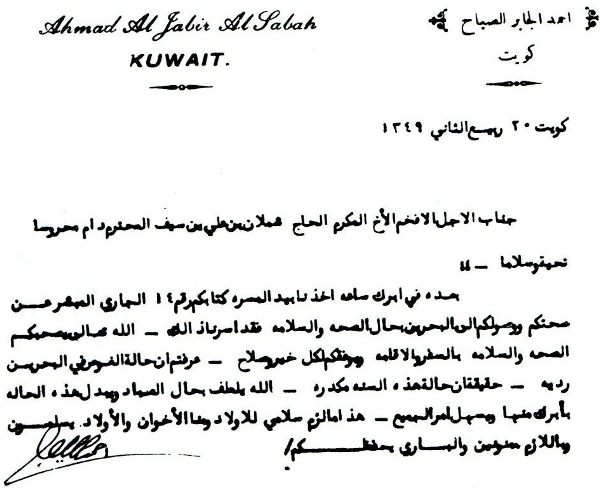 Ahmad Al Jabir Al Sabah
KUWAIT.
احمد الجابر الصباح
كويت
كويت ٢٠ ربيع الثاني ١٣٤٩
جناب الاجل الافخم الأخ المكرم الحاج شملان بن علي بن سيف المحترم دام محروسا
تحية وسلاما _
بعده في ابرك ساعه اخذنا بيد المسره كتابكم رقم ١٤ الجاري المبشر عن
صحتكم ووصولكم الى البحرين بحال الصحه والسلامه فقد اسرنا ذالك _ الله تعالى يصحبكم
الصحه والسلامه بالسفر والاقامه ويوفقكم لكل خير وصلاح _ عرفتم ان حالة الغوص في البحرين
رديه _ حقيقة ان حالة هذه السنه مكدره _ الله يلطف بحال العباد ويبدل هذه الحاله
بأبرك منها ويسهل امر الجميع _ هذا مالزم سلامي للاولاد ومنا الأخوان والأولاد يسلمون
وماللازم ممنونين والباري يحفظكم /